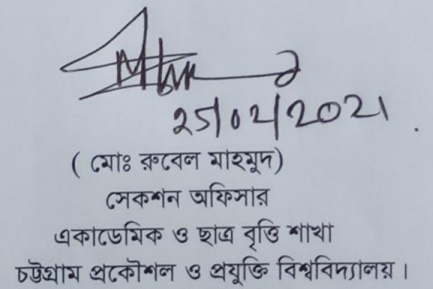 ২৫/০২/২০২১
( মোঃ রুবেল মাহমুদ)
সেকশন অফিসার
একাডেমিক ও ছাত্র বৃত্তি শাখা
চট্টগ্রাম প্রকৌশল ও প্রযুক্তি বিশ্ববিদ্যালয়।